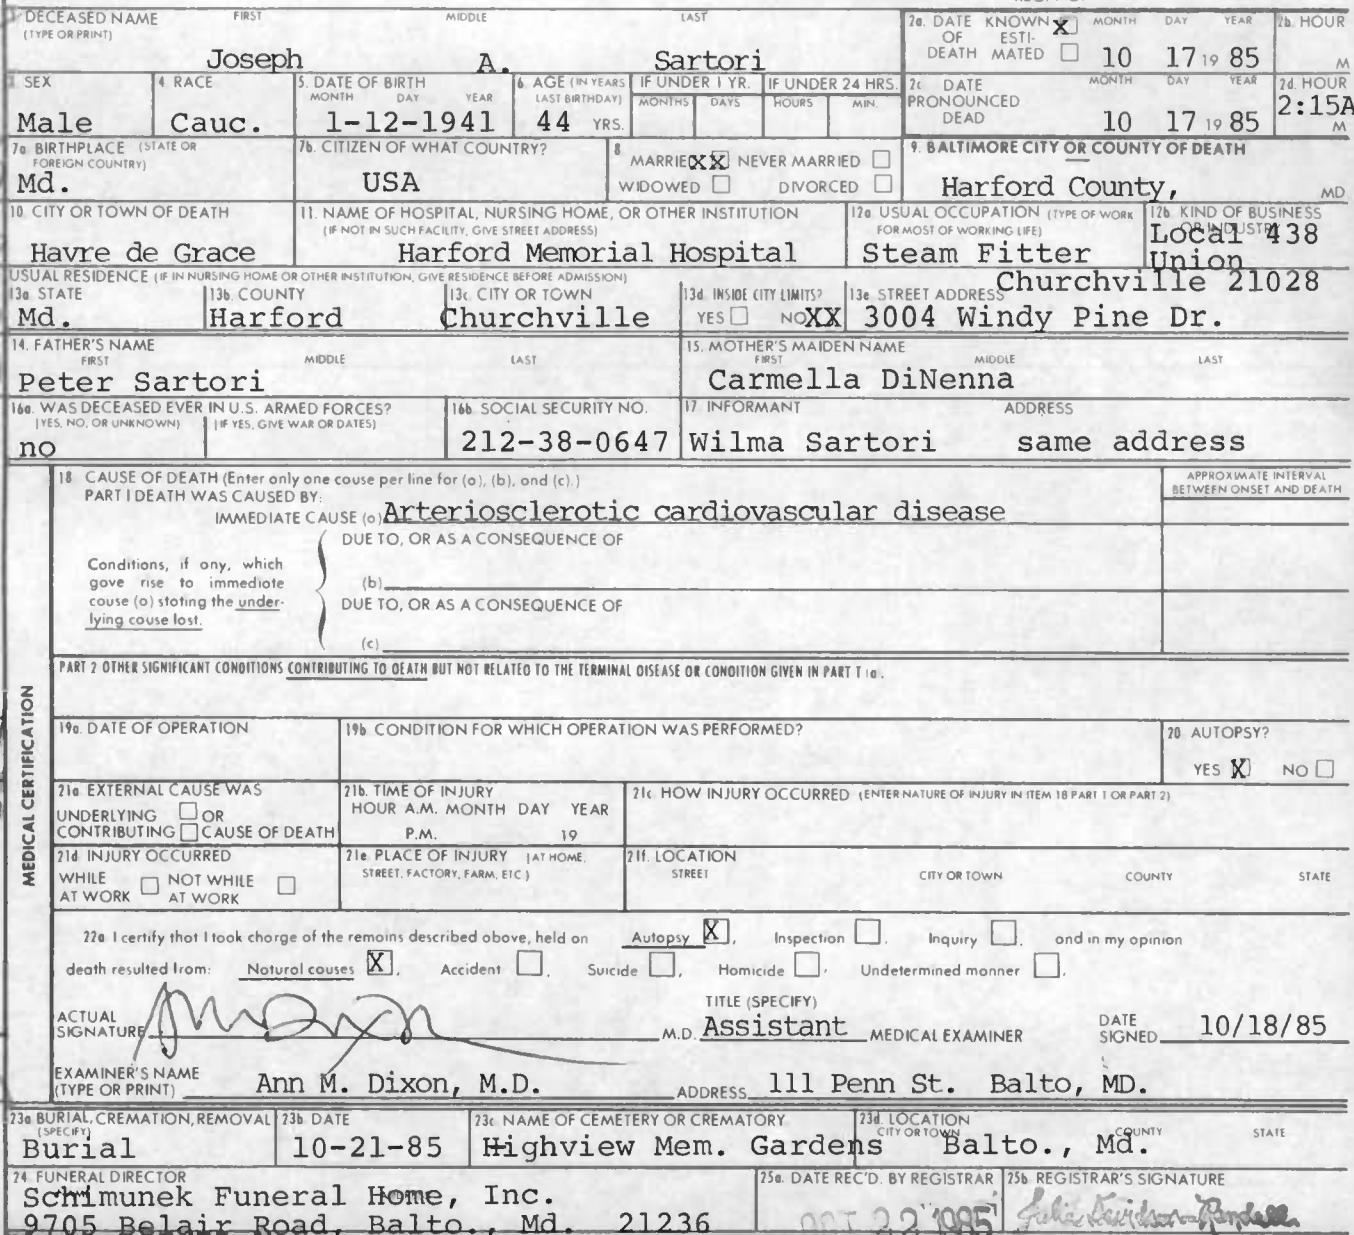 1 DECEASED NAME FIRST MIDDLE LAST
(TYPE OR PRINT)
Joseph A. Sartori
2a. DATE KNOWN X MONTH DAY YEAR 2b. HOUR
OF ESTI-
DEATH MATED
10 17 19 85 M
3 SEX 4 RACE 5. DATE OF BIRTH 6 AGE (IN YEARS IF UNDER 1 YR. IF UNDER 24 HRS.
MONTH DAY YEAR LAST BIRTHDAY) MONTHS DAYS HOURS MIN.
Male Cauc. 1-12-1941 44 YRS.
2c DATE MONTH DAY YEAR 2d. HOUR
PRONOUNCED
DEAD 10 17 19 85 2:15A
M
7a BIRTHPLACE (STATE OR
FOREIGN COUNTRY)
Md.
7b. CITIZEN OF WHAT COUNTRY?
USA
8 MARRIED XX NEVER MARRIED
WIDOWED DIVORCED
9. BALTIMORE CITY OR COUNTY OF DEATH
Harford County, MD
10 CITY OR TOWN OF DEATH
Havre de Grace
11. NAME OF HOSPITAL, NURSING HOME, OR OTHER INSTITUTION
(IF NOT IN SUCH FACILITY, GIVE STREET ADDRESS)
Harford Memorial Hospital
12a USUAL OCCUPATION (TYPE OF WORK
FOR MOST OF WORKING LIFE)
Steam Fitter
12b KIND OF BUSINESS
OR INDUSTRY
Local 438
Union
USUAL RESIDENCE (IF IN NURSING HOME OR OTHER INSTITUTION, GIVE RESIDENCE BEFORE ADMISSION)
13a STATE 13b. COUNTY 13c. CITY OR TOWN 13d INSIDE CITY LIMITS? 13e STREET ADDRESS Churchville 21028
Md. Harford Churchville YES NO XX 3004 Windy Pine Dr.
14. FATHER'S NAME
FIRST MIDDLE LAST
Peter Sartori
15. MOTHER'S MAIDEN NAME
FIRST MIDDLE LAST
Carmella DiNenna
16a. WAS DECEASED EVER IN U.S. ARMED FORCES?
(YES, NO, OR UNKNOWN) (IF YES, GIVE WAR OR DATES)
no
16b SOCIAL SECURITY NO.
212-38-0647
17 INFORMANT ADDRESS
Wilma Sartori same address
MEDICAL CERTIFICATION
18 CAUSE OF DEATH (Enter only one cause per line for (a), (b), and (c).)
PART I DEATH WAS CAUSED BY:
APPROXIMATE INTERVAL
BETWEEN ONSET AND DEATH
IMMEDIATE CAUSE (a) Arteriosclerotic cardiovascular disease
DUE TO, OR AS A CONSEQUENCE OF
Conditions, if any, which
gave rise to immediate
cause (a) stating the under-
lying cause last.
(b)
DUE TO, OR AS A CONSEQUENCE OF
(c)
PART 2 OTHER SIGNIFICANT CONDITIONS CONTRIBUTING TO DEATH BUT NOT RELATED TO THE TERMINAL DISEASE OR CONDITION GIVEN IN PART I 1a.
19a. DATE OF OPERATION 19b CONDITION FOR WHICH OPERATION WAS PERFORMED? 20 AUTOPSY?
YES X NO
21a EXTERNAL CAUSE WAS
UNDERLYING OR
CONTRIBUTING CAUSE OF DEATH
21b. TIME OF INJURY
HOUR A.M. MONTH DAY YEAR
P.M. 19
21c HOW INJURY OCCURRED (ENTER NATURE OF INJURY IN ITEM 18 PART 1 OR PART 2)
21d INJURY OCCURRED
WHILE NOT WHILE
AT WORK AT WORK
21e PLACE OF INJURY (AT HOME,
STREET, FACTORY, FARM, ETC)
21f. LOCATION
STREET CITY OR TOWN COUNTY STATE
22a I certify that I took charge of the remains described above, held on Autopsy X, Inspection, Inquiry, and in my opinion
death resulted from: Natural causes X, Accident, Suicide, Homicide, Undetermined manner.
ACTUAL
SIGNATURE
M.D.
TITLE (SPECIFY)
Assistant MEDICAL EXAMINER
DATE
SIGNED 10/18/85
EXAMINER'S NAME
(TYPE OR PRINT) Ann M. Dixon, M.D. ADDRESS 111 Penn St. Balto, MD.
23a BURIAL, CREMATION, REMOVAL 23b DATE 23c NAME OF CEMETERY OR CREMATORY 23d LOCATION
(SPECIFY) CITY OR TOWN COUNTY STATE
Burial 10-21-85 Highview Mem. Gardens Balto., Md.
24 FUNERAL DIRECTOR
Schimunek Funeral Home, Inc.
9705 Belair Road, Balto., Md. 21236
25a. DATE REC'D. BY REGISTRAR
OCT 22 1985
25b REGISTRAR'S SIGNATURE
Julia Davidson-Randall